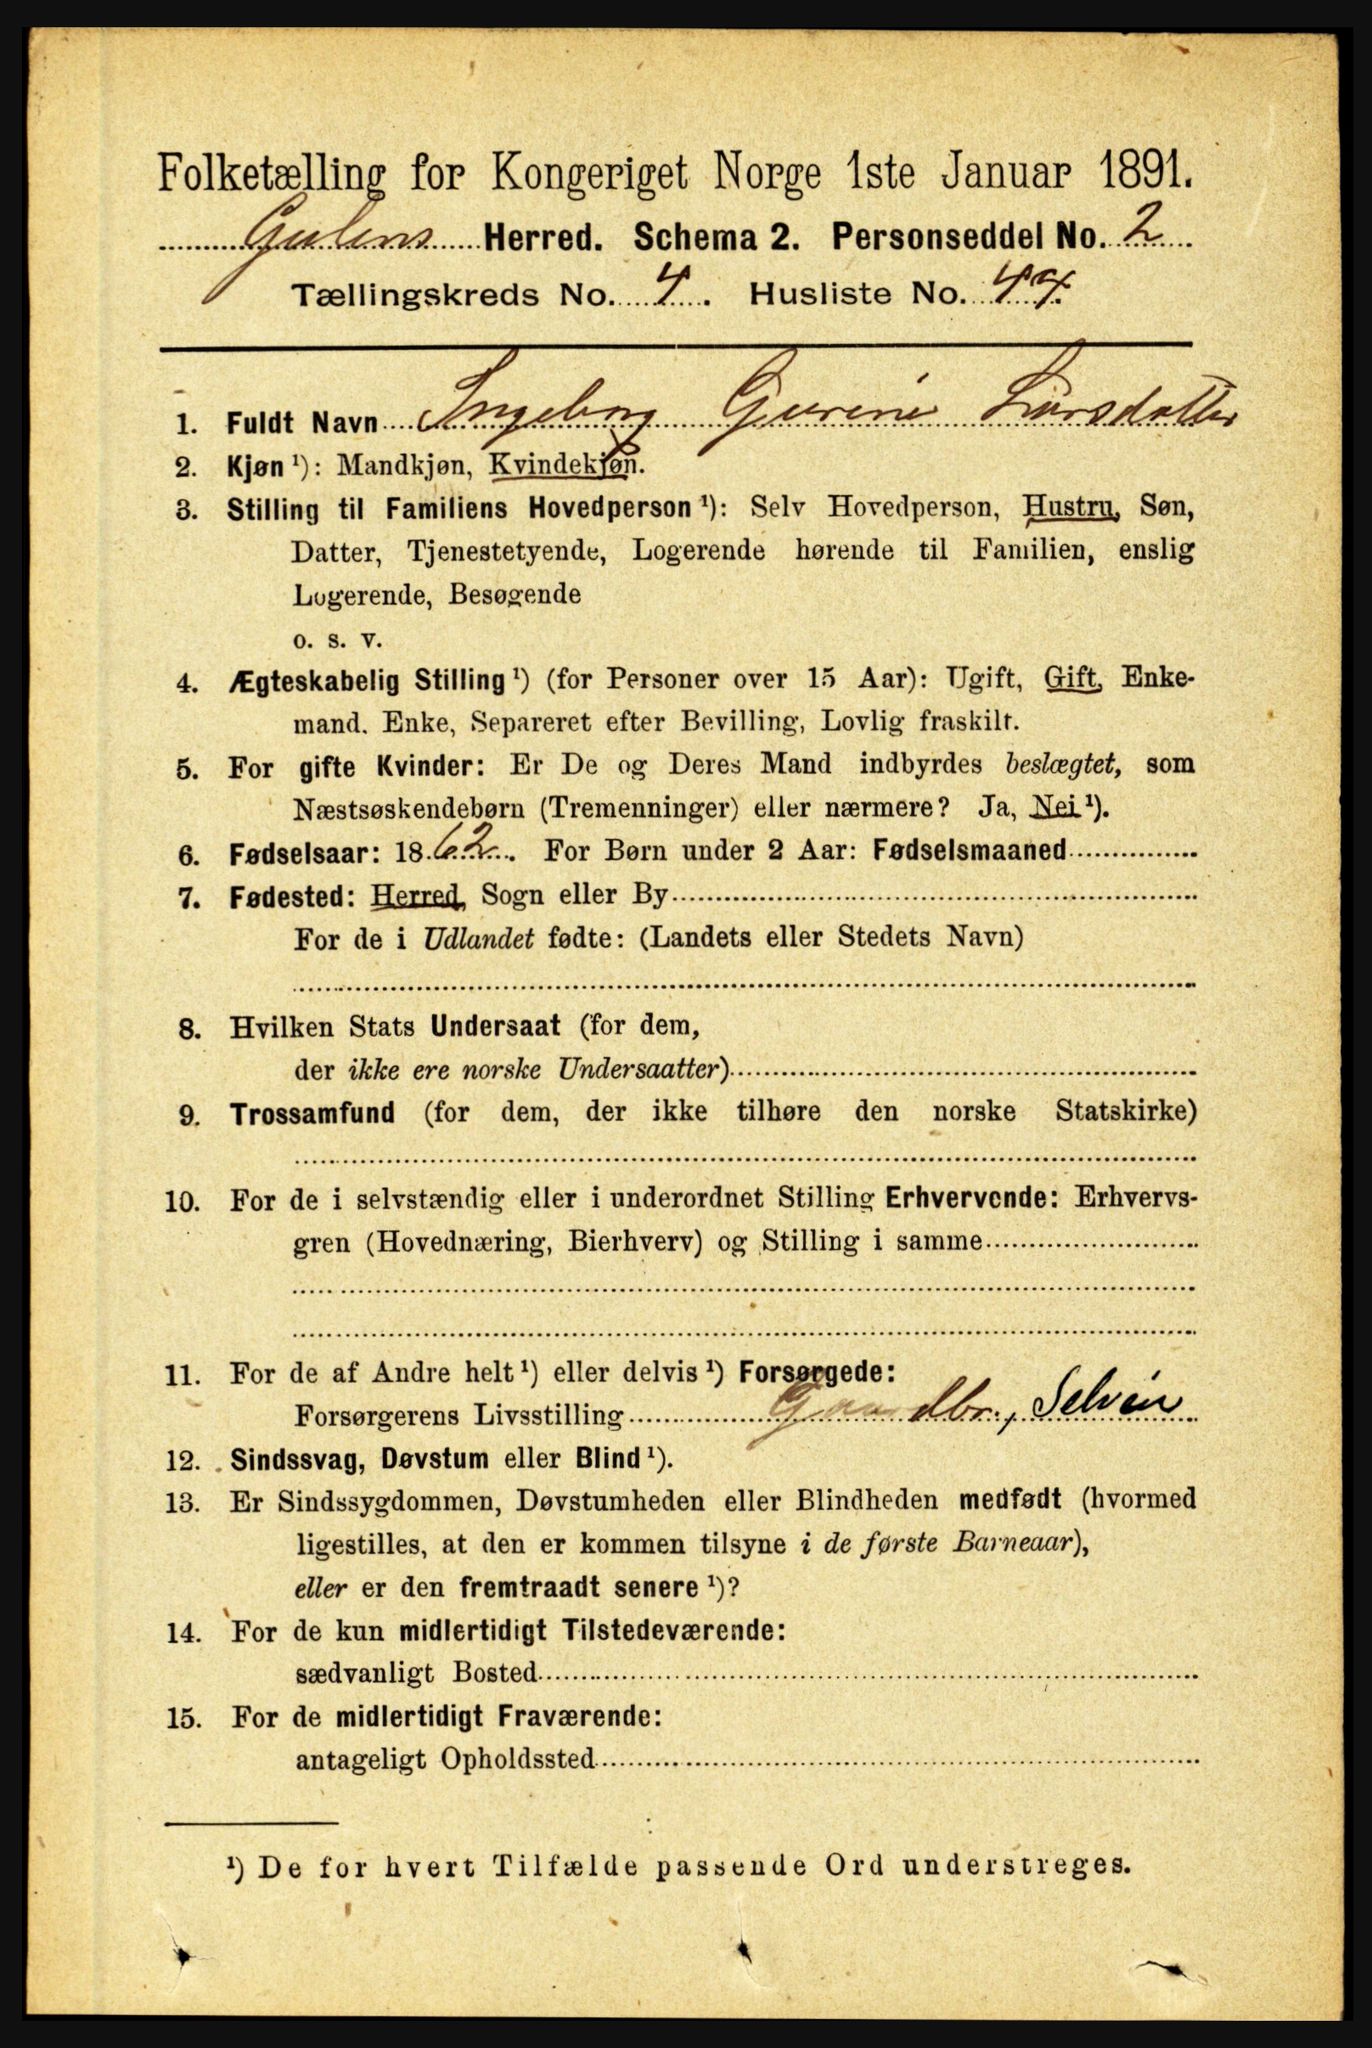 Folketælling for Kongeriget Norge 1ste Januar 1891.
Gulens Herred. Schema 2. Personseddel No. 2
Tællingskreds No. 4. Husliste No. 44
1. Fuldt Navn Ingeborg Gurine Larsdatter
2. Kjøn ¹): Mandkjøn, Kvindekjøn.
3. Stilling til Familiens Hovedperson ¹): Selv Hovedperson, Hustru, Søn,
Datter, Tjenestetyende, Logerende hørende til Familien, enslig
Logerende, Besøgende
o. s. v.
4. Ægteskabelig Stilling ¹) (for Personer over 15 Aar): Ugift, Gift, Enke-
mand. Enke, Separeret efter Bevilling, Lovlig fraskilt.
5. For gifte Kvinder: Er De og Deres Mand indbyrdes beslægtet, som
Næstsøskendebørn (Tremenninger) eller nærmere? Ja, Nei ¹).
6. Fødselsaar: 1862. For Børn under 2 Aar: Fødselsmaaned
7. Fødested: Herred, Sogn eller By
For de i Udlandet fødte: (Landets eller Stedets Navn)
8. Hvilken Stats Undersaat (for dem,
der ikke ere norske Undersaatter)
9. Trossamfund (for dem, der ikke tilhøre den norske Statskirke)
10. For de i selvstændig eller i underordnet Stilling Erhvervende: Erhvervs-
gren (Hovednæring, Bierhverv) og Stilling i samme
11. For de af Andre helt ¹) eller delvis ¹) Forsørgede:
Forsørgerens Livsstilling Gaardbr., Selvei
12. Sindssvag, Døvstum eller Blind ¹).
13. Er Sindssygdommen, Døvstumheden eller Blindheden medfødt (hvormed
ligestilles, at den er kommen tilsyne i de første Barneaar),
eller er den fremtraadt senere ¹)?
14. For de kun midlertidigt Tilstedeværende:
sædvanligt Bosted
15. For de midlertidigt Fraværende:
antageligt Opholdssted
¹) De for hvert Tilfælde passende Ord understreges.